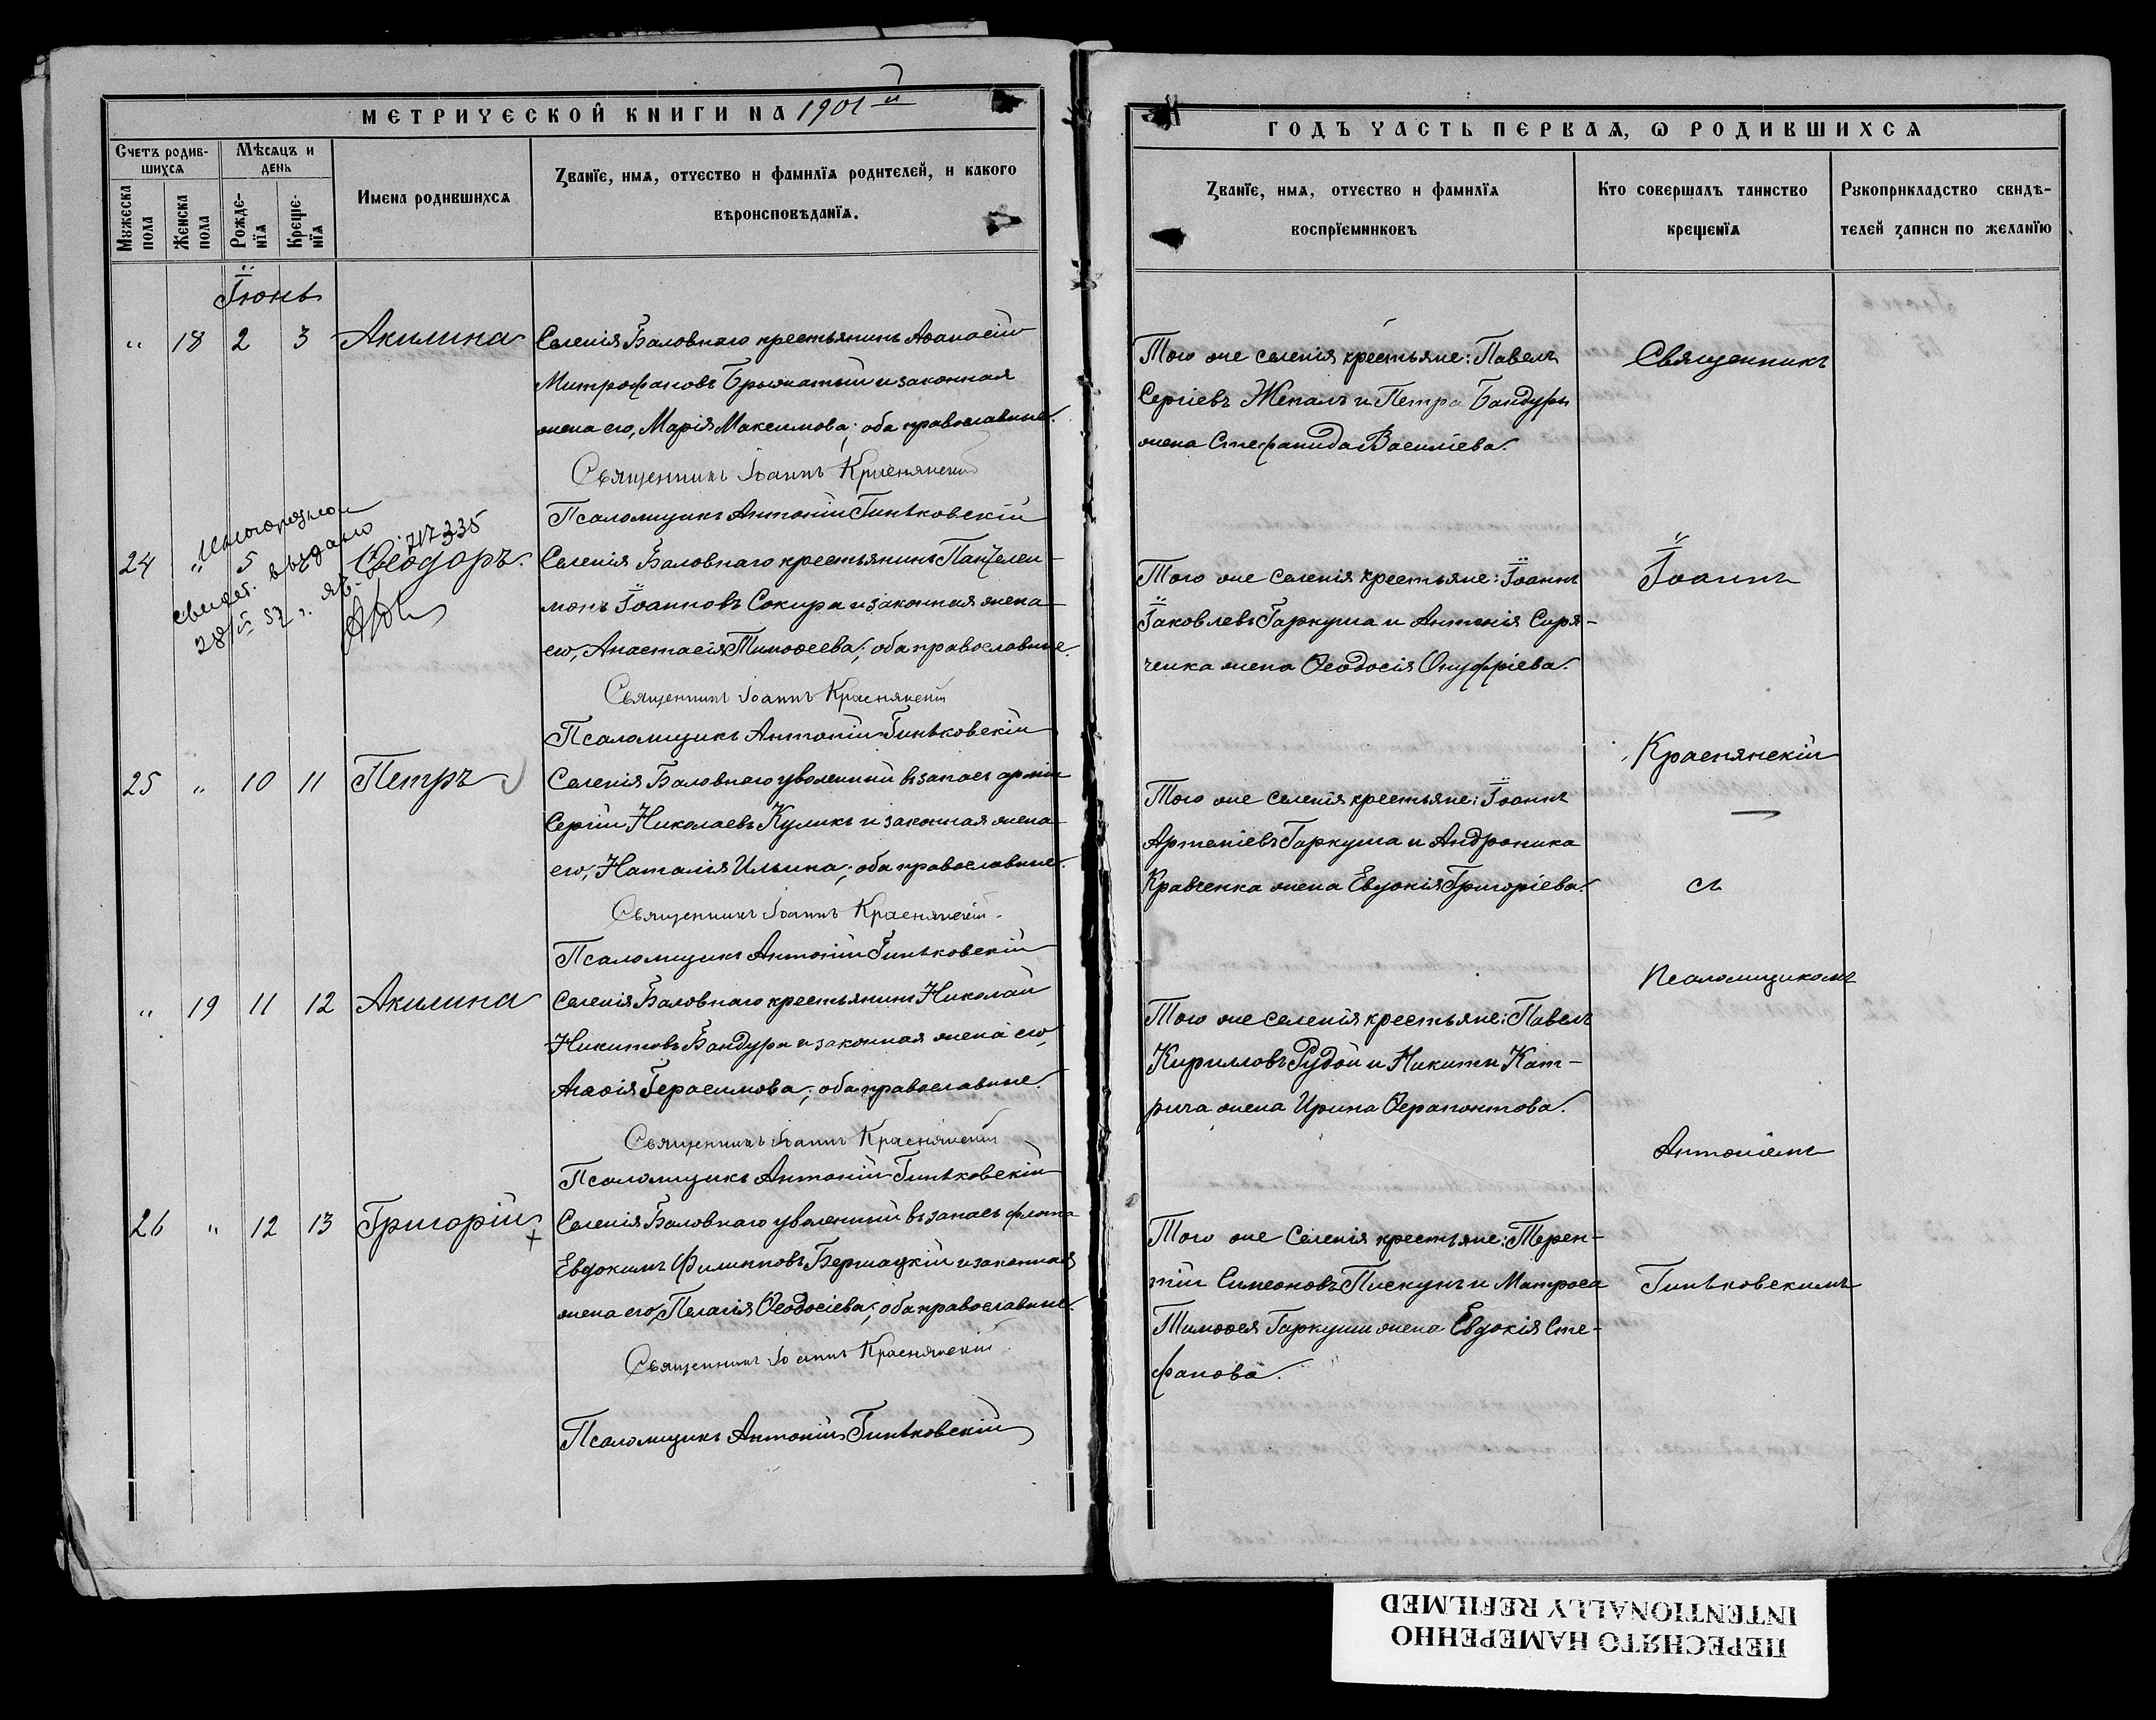 МЕТРИЧЕСКОЙ КНИГИ НА 1901й
Счетъ родив-
шихся
Мѣсяцъ и
день
Мужеска
пола
Женска
пола
Рожде-
нїя
Креще-
нїя
Имена родившихся
Званїе, имя, отчество и фамилїя родителей, и какого
вѣроисповѣданїя.
Іюнь
" 18 2 3 Акилина
Селенія Баловнаго крестьянинъ Аѳанасій
Митрофановъ и законная
жена его, Марія Максимова; оба православные.
Священникъ Іоаннъ Краснянскій
Псаломщикъ Антоній Гиньковскій
24 " 5 Ѳеодоръ.
выдано
717335
Селенія Баловнаго крестьянинъ Пантелеи-
монъ Іоанновъ Сокира и законная жена
его, Анастасія Тимоѳеева; оба православные.
Священникъ Іоаннъ Краснянскій
Псаломщикъ Антоній Гиньковскій
25 " 10 11 Петръ
Селенія Баловнаго уволенный въ запасъ арміи
Сергій Николаевъ Куликъ и законная жена
его, Наталія Ильина; оба православные.
Священникъ Іоаннъ Краснянскій
Псаломщикъ Антоній Гиньковскій
" 19 11 12 Акилина
Селенія Баловнаго крестьянинъ Николай
Никитовъ Бандура и законная жена его,
Агаѳія Герасимова; оба православные.
Священникъ Іоаннъ Краснянскій
Псаломщикъ Антоній Гиньковскій
26 " 12 13 Григорій
Селенія Баловнаго уволенный въ запасъ флота
Евдокимъ Филипповъ Бершацкій и законная
жена его, Пелагія Ѳеодосіева; оба православные.
Священникъ Іоаннъ Краснянскій
Псаломщикъ Антоній Гиньковскій
ГОДЪ ЧАСТЬ ПЕРВАЯ, Ѡ РОДИВШИХСЯ
Званїе, имя, отчество и фамилїя
воспрїемниковъ
Кто совершалъ таинство
крещенїя
Рукоприкладство свидѣ-
телей записи по желанїю
Того же селенія крестьяне: Павелъ
Сергіевъ Жекалъ и Петра Бандуры
жена Стефанида Василіева.
Того же селенія крестьяне: Іоаннъ
Іаковлевъ Гаркуша и Антонія Сиря-
ченка жена Ѳеодосія Онуфріева.
Того же селенія крестьяне: Іоаннъ
Артеміевъ Гаркуша и Андроника
Кравченка жена Евдокія Григоріева.
Того же селенія крестьяне: Павелъ
Кирилловъ Рудой и Никиты Кат-
рича жена Ирина Ѳерапонтова.
Того же селенія крестьяне: Терен-
тій Симеоновъ Пискунъ и Матроса
Тимоѳея Гаркуши жена Евдокія Сте-
фанова.
Священникъ
Іоаннъ
Краснянскій
съ
Псаломщикомъ
Антоніемъ
Гиньковскимъ
ПЕРЕСНЯТО НАМЕРЕННО
INTENTIONALLY REFILMED